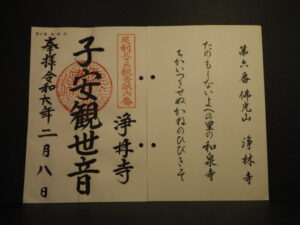 第六番佛光山 浄林寺
たのもしないよへの里の和泉寺
ちかいつきせぬかねのひびきそ
足利三十三観音第六番
浄林寺
子安観世音
奉拝令和六年二月八日